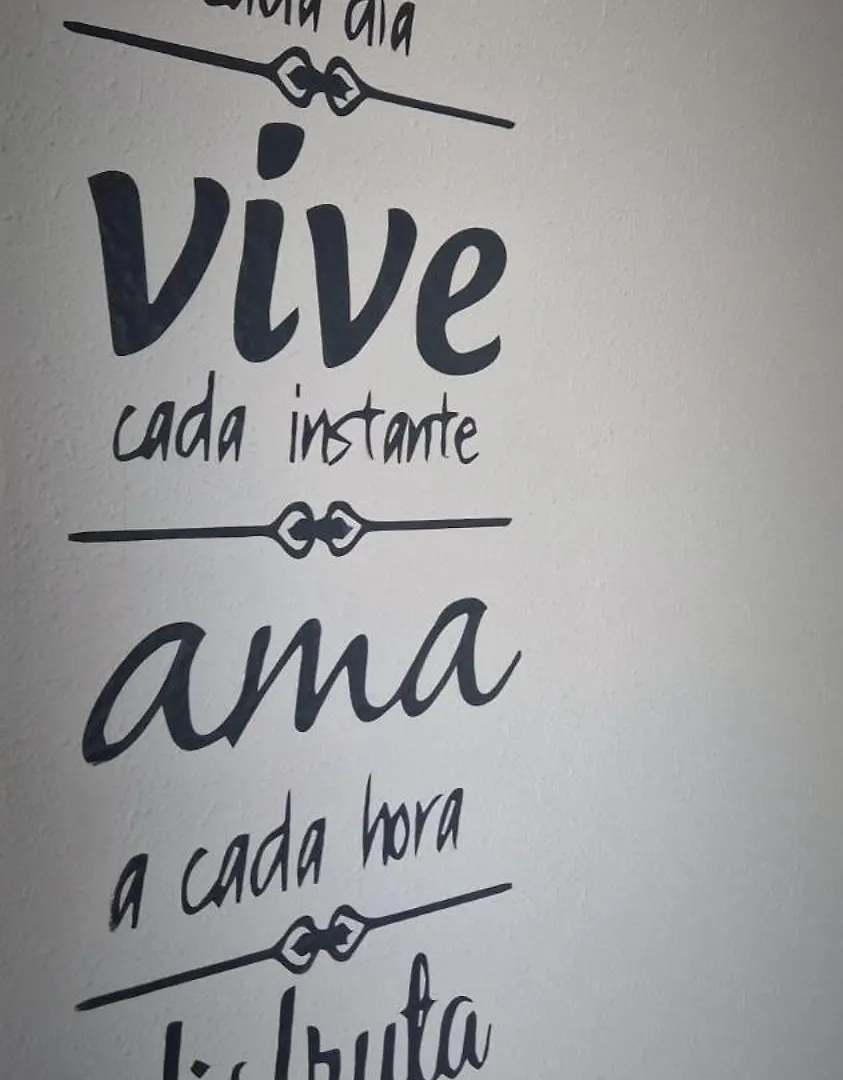 cada día
vive
cada instante
ama
a cada hora
disfruta